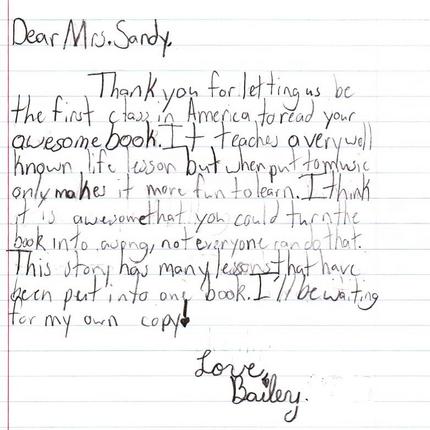 Dear Mrs. Sandy,
Thank you for letting us be
the first class in America, to read your
awesome book. It teaches a very well
known life lesson but when put to music
only makes it more fun to learn. I think
it is awesome that you could turn the
book into a song, not everyone can do that.
This story has many lessons that have
been put into one book. I'll be waiting
for my own copy!
Love,
Bailey.